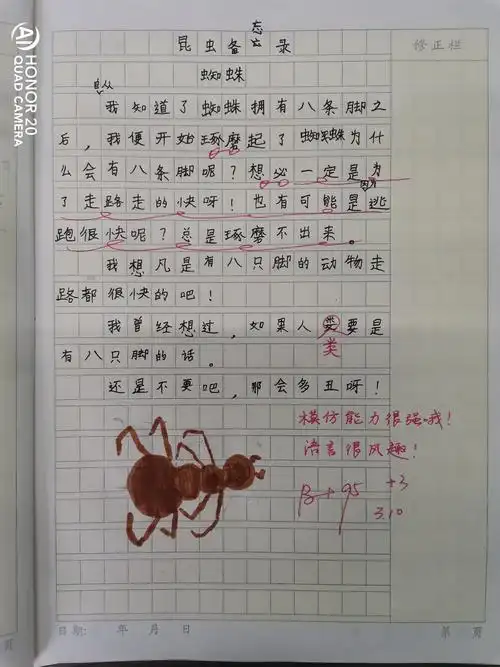 AI HONOR 20
QUAD CAMERA
忘
昆虫备录
修正栏
蜘蛛
自从
我知道了蜘蛛拥有八条脚之
后，我便开始琢磨起了蜘蛛为什
么会有八条脚呢？想必一定是为
因为
了走路走的快呀！也有可能是逃
跑很快呢？总是琢磨不出来。
我想凡是有八只脚的动物走
路都很快的吧！
我曾经想过，如果人类要是
类
有八只脚的话。
还是不要吧，那会多丑呀！
模仿能力很强哦！
语言很风趣！
95 +3
3.10
日期： 年 月 日
第 页
页